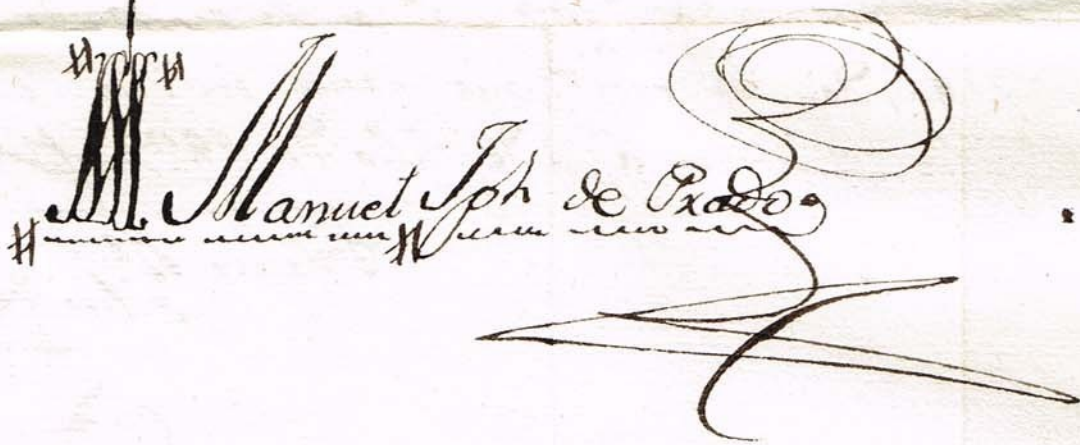 M. Manuel Jph de Prado